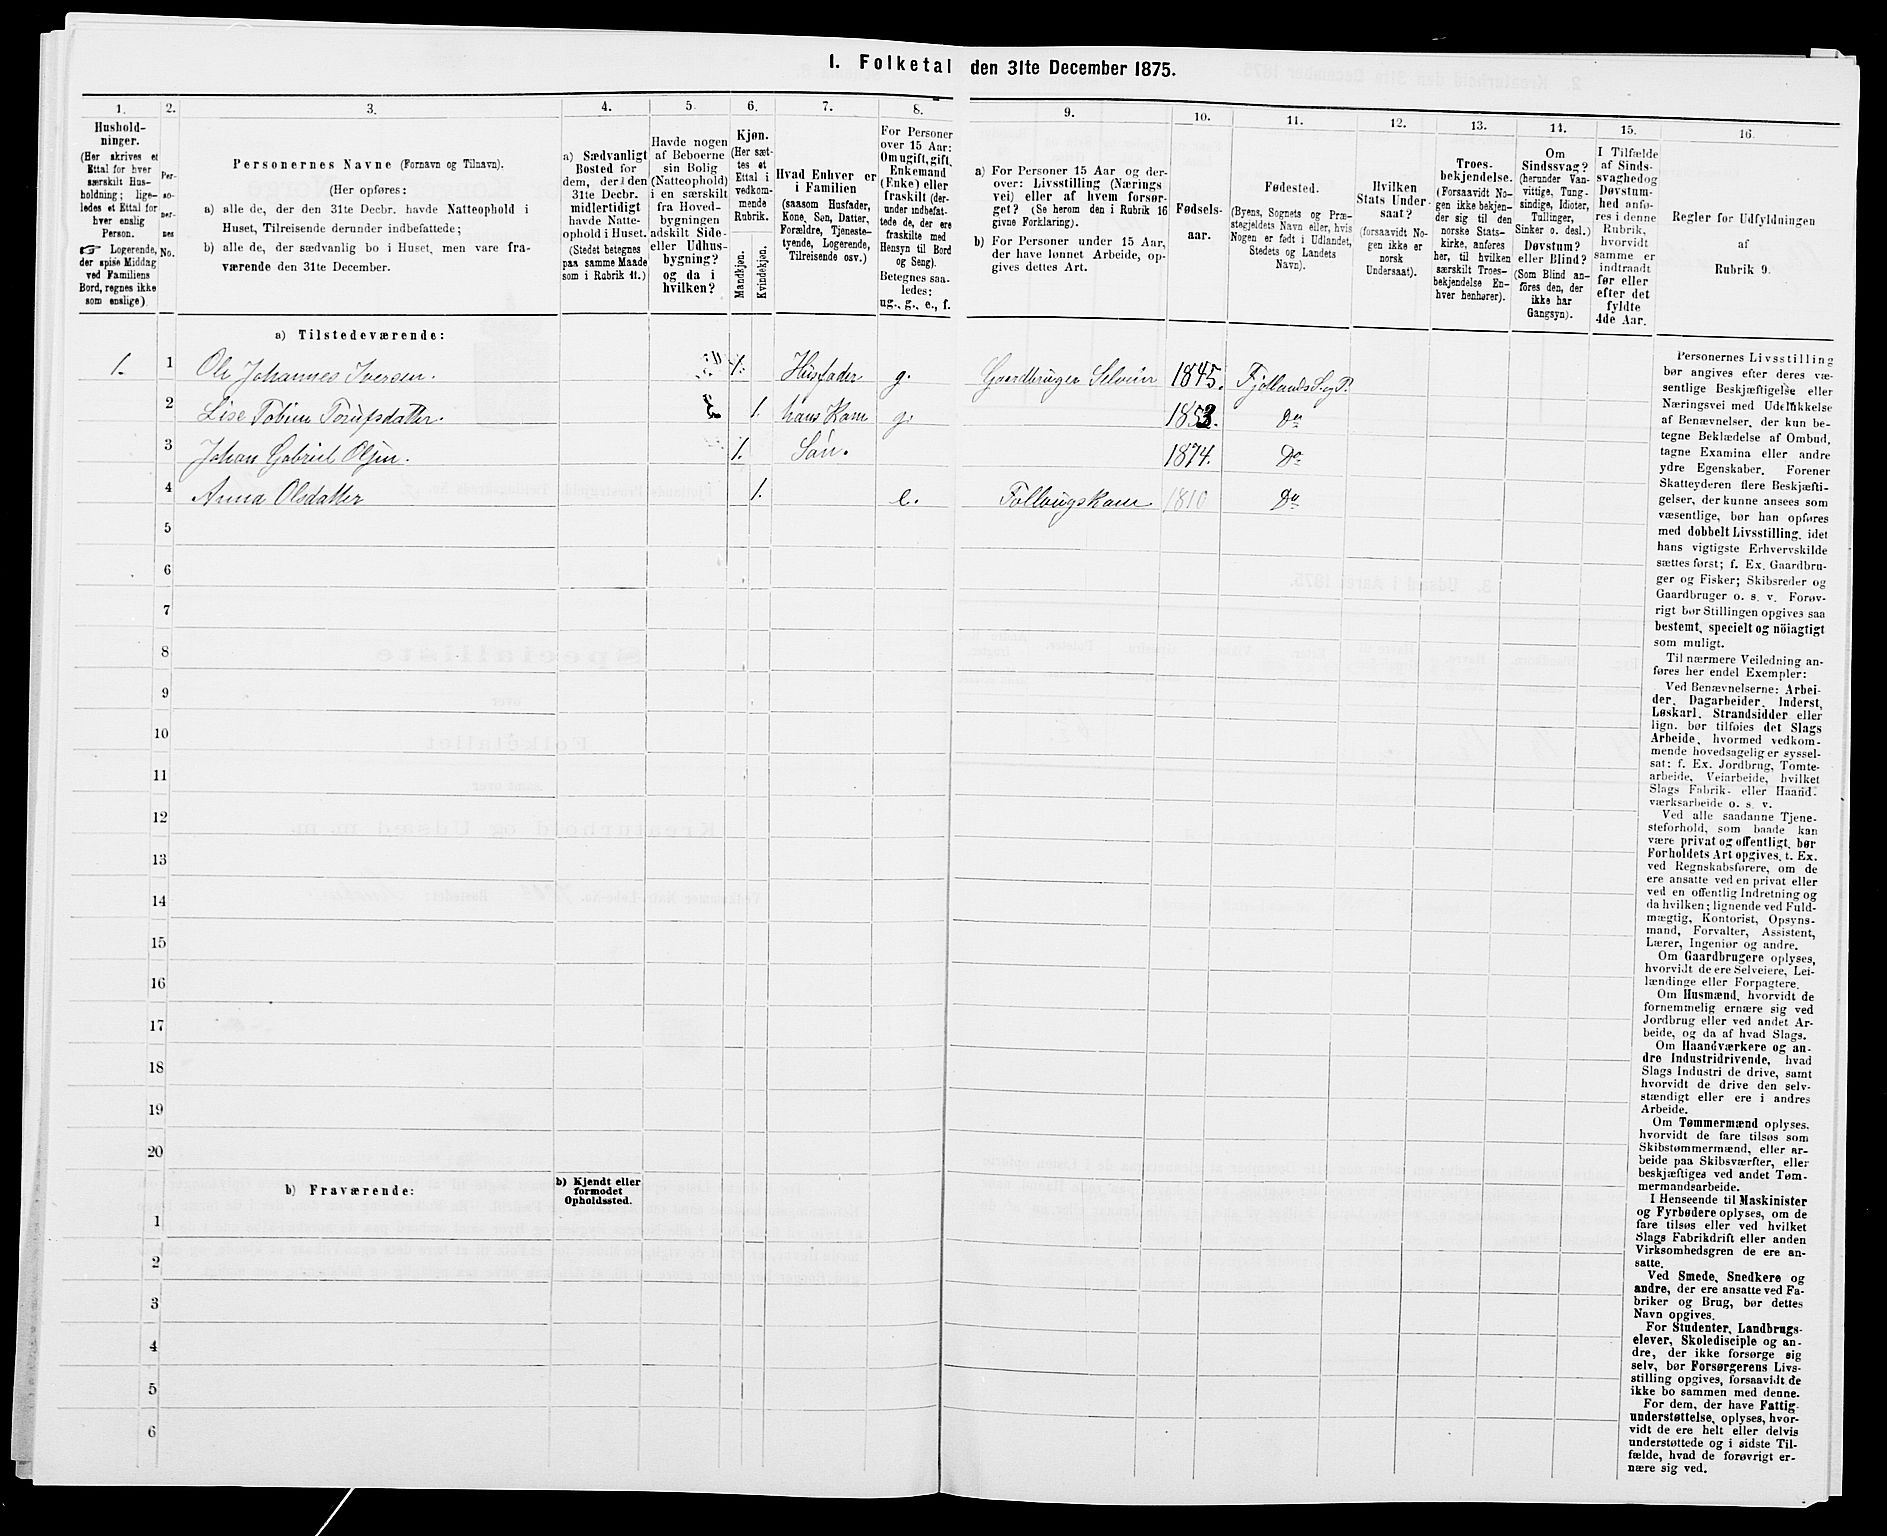 1. Folketal den 31te December 1875.
1. 2. 3. 4. 5. 6. 7. 8. 9. 10. 11. 12. 13. 14. 15. 16.
Hushold-
ninger.
(Her skrives et
Ettal for hver
særskilt Hus-
holdning; lige-
ledes et Ettal for
hver enslig
Person.
☞ Logerende,
der spise Middag
ved Familiens
Bord, regnes ikke
som enslige)
Per-
so-
ner-
nes
No.
Personernes Navne (Fornavn og Tilnavn).
(Her opføres:
a) alle de, der den 31te Decbr. havde Natteophold i
Huset, Tilreisende derunder indbefattede;
b) alle de, der sædvanlig bo i Huset, men vare fra-
værende den 31te December.
a) Sædvanligt
Bosted for
dem, der i den
31te Decbr.
midlertidigt
havde Natte-
ophold i Huset.
(Stedet betegnes
paa samme Maade
som i Rubrik 11.)
Havde nogen
af Beboerne
sin Bolig
(Natteophold)
i en særskilt
fra Hoved-
bygningen
adskilt Side-
eller Udhus-
bygning?
og da i
hvilken?
Kjøn.
(Her sæt-
tes et
Ettal i
vedkom-
mende
Rubrik.
Mandkjøn.
Kvindekjøn.
Hvad Enhver er
i Familien
(saasom Husfader,
Kone, Søn, Datter,
Forældre, Tjeneste-
tyende, Logerende,
Tilreisende osv.)
For Personer
over 15 Aar:
Om ugift, gift,
Enkemand
(Enke) eller
fraskilt (der-
under indbefat-
tede de, der ere
fraskilte med
Hensyn til Bord
og Seng).
Betegnes saa-
ledes:
ug., g., e., f.
a) For Personer 15 Aar og der-
over: Livsstilling (Nærings
vei) eller af hvem forsør-
get? (Se herom den i Rubrik 16
givne Forklaring).
b) For Personer under 15 Aar,
der have lønnet Arbeide, op-
gives dettes Art.
Fødsels-
aar.
Fødested.
(Byens, Sognets og Præ-
stegjeldets Navn eller, hvis
Nogen er født i Udlandet,
Stedets og Landets
Navn).
Hvilken
Stats Under-
saat?
(forsaavidt No-
gen ikke er
norsk
Undersaat).
Troes-
bekjendelse.
(Forsaavidt No-
gen ikke bekjen-
der sig til den
norske Stats-
kirke, anføres
her, til hvilken
særskilt Troes-
bekjendelse En-
hver henhører).
Om
Sindssvag?
(herunder Van-
vittige, Tung-
sindige, Idioter,
Tullinger,
Sinker o. desl.)
Døvstum?
eller Blind?
(Som Blind an-
føres den, der
ikke har
Gangsyn).
I Tilfælde
af Sinds-
svaghed og
Døvstum-
hed anfø-
res i denne
Rubrik,
hvorvidt
samme er
indtraadt
før eller
efter det
fyldte
4de Aar.
Regler for Udfyldningen
af
Rubrik 9.
a) Tilstedeværende:
1. 1 Ole Johannes Iversen. 1. Husfader g. Gaardbruger Selveier 1845. Fjotlands S. og P.
2 Lise Tobine Torufsdatter. 1. hans Kone g. 1853. Do
3 Johan Gabriel Olsen. 1. Søn. 1874. Do
4 Anna Olsdatter 1. e. Føllougskone 1810 Do
5
6
7
8
9
10
11
12
13
14
15
16
17
18
19
20
b) Fraværende:
b) Kjendt eller
formodet
Opholdssted.
1
2
3
4
5
6
Personernes Livsstilling
bør angives efter deres væ-
sentlige Beskjæftigelse eller
Næringsvei med Udelukkelse
af Benævnelser, der kun be-
tegne Beklædelse af Ombud,
tagne Examina eller andre
ydre Egenskaber. Forener
Skatteyderen flere Beskjæfti-
gelser, der kunne ansees som
væsentlige, bør han opføres
med dobbelt Livsstilling, idet
hans vigtigste Erhvervskilde
sættes først; f. Ex. Gaardbru-
ger og Fisker; Skibsreder og
Gaardbruger o. s. v. Forøv-
rigt bør Stillingen opgives saa
bestemt, specielt og nöiagtigt
som muligt.
Til nærmere Veiledning an-
føres her endel Exempler:
Ved Benævnelserne: Arbei-
der, Dagarbeider, Inderst,
Løskarl, Strandsidder eller
lign. bør tilføies det Slags
Arbeide, hvormed vedkom-
mende hovedsagelig er syssel-
sat; f. Ex. Jordbrug, Tomte-
arbeide, Veiarbeide, hvilket
Slags Fabrik- eller Haand-
værksarbeide o. s. v.
Ved alle saadanne Tjene-
steforhold, som baade kan
være privat og offentligt, bør
Forholdets Art opgives, t. Ex.
ved Regnskabsførere, om de
ere ansatte ved en privat eller
ved en offentlig Indretning og
da hvilken; lignende ved Fuld-
mægtig, Kontorist, Opsyns-
mand, Forvalter, Assistent,
Lærer, Ingeniør og andre.
Om Gaardbrugere oplyses,
hvorvidt de ere Selveiere, Lei-
lændinge eller Forpagtere.
Om Husmænd, hvorvidt de
fornemmelig ernære sig ved
Jordbrug eller ved andet Ar-
beide, og da af hvad Slags.
Om Haandværkere og an-
dre Industridrivende, hvad
Slags Industri de drive, samt
hvorvidt de drive den selv-
stændigt eller ere i andres
Arbeide.
Om Tømmermænd oplyses,
hvorvidt de fare tilsøs som
Skibstømmermænd, eller ar-
beide paa Skibsværfter, eller
beskjæftiges ved andet Tøm-
mermandsarbeide.
I Henseende til Maskinister
og Fyrbødere oplyses, om de
fare tilsøs eller ved hvilket
Slags Fabrikdrift eller anden
Virksomhedsgren de ere an-
satte.
Ved Smede, Snedkere og
andre, der ere ansatte ved Fa-
briker og Brug, bør dettes
Navn opgives.
For Studenter, Landbrugs-
elever, Skoledisciple og an-
dre, der ikke forsørge sig
selv, bør Forsørgerens Livs-
stilling opgives, forsaavidt de
ikke bo sammen med denne.
For dem, der have Fattig-
understøttelse, oplyses, hvor-
vidt de ere helt eller delvis
understøttede og i sidste Til-
fælde, hvad de forøvrigt er-
nære sig ved.